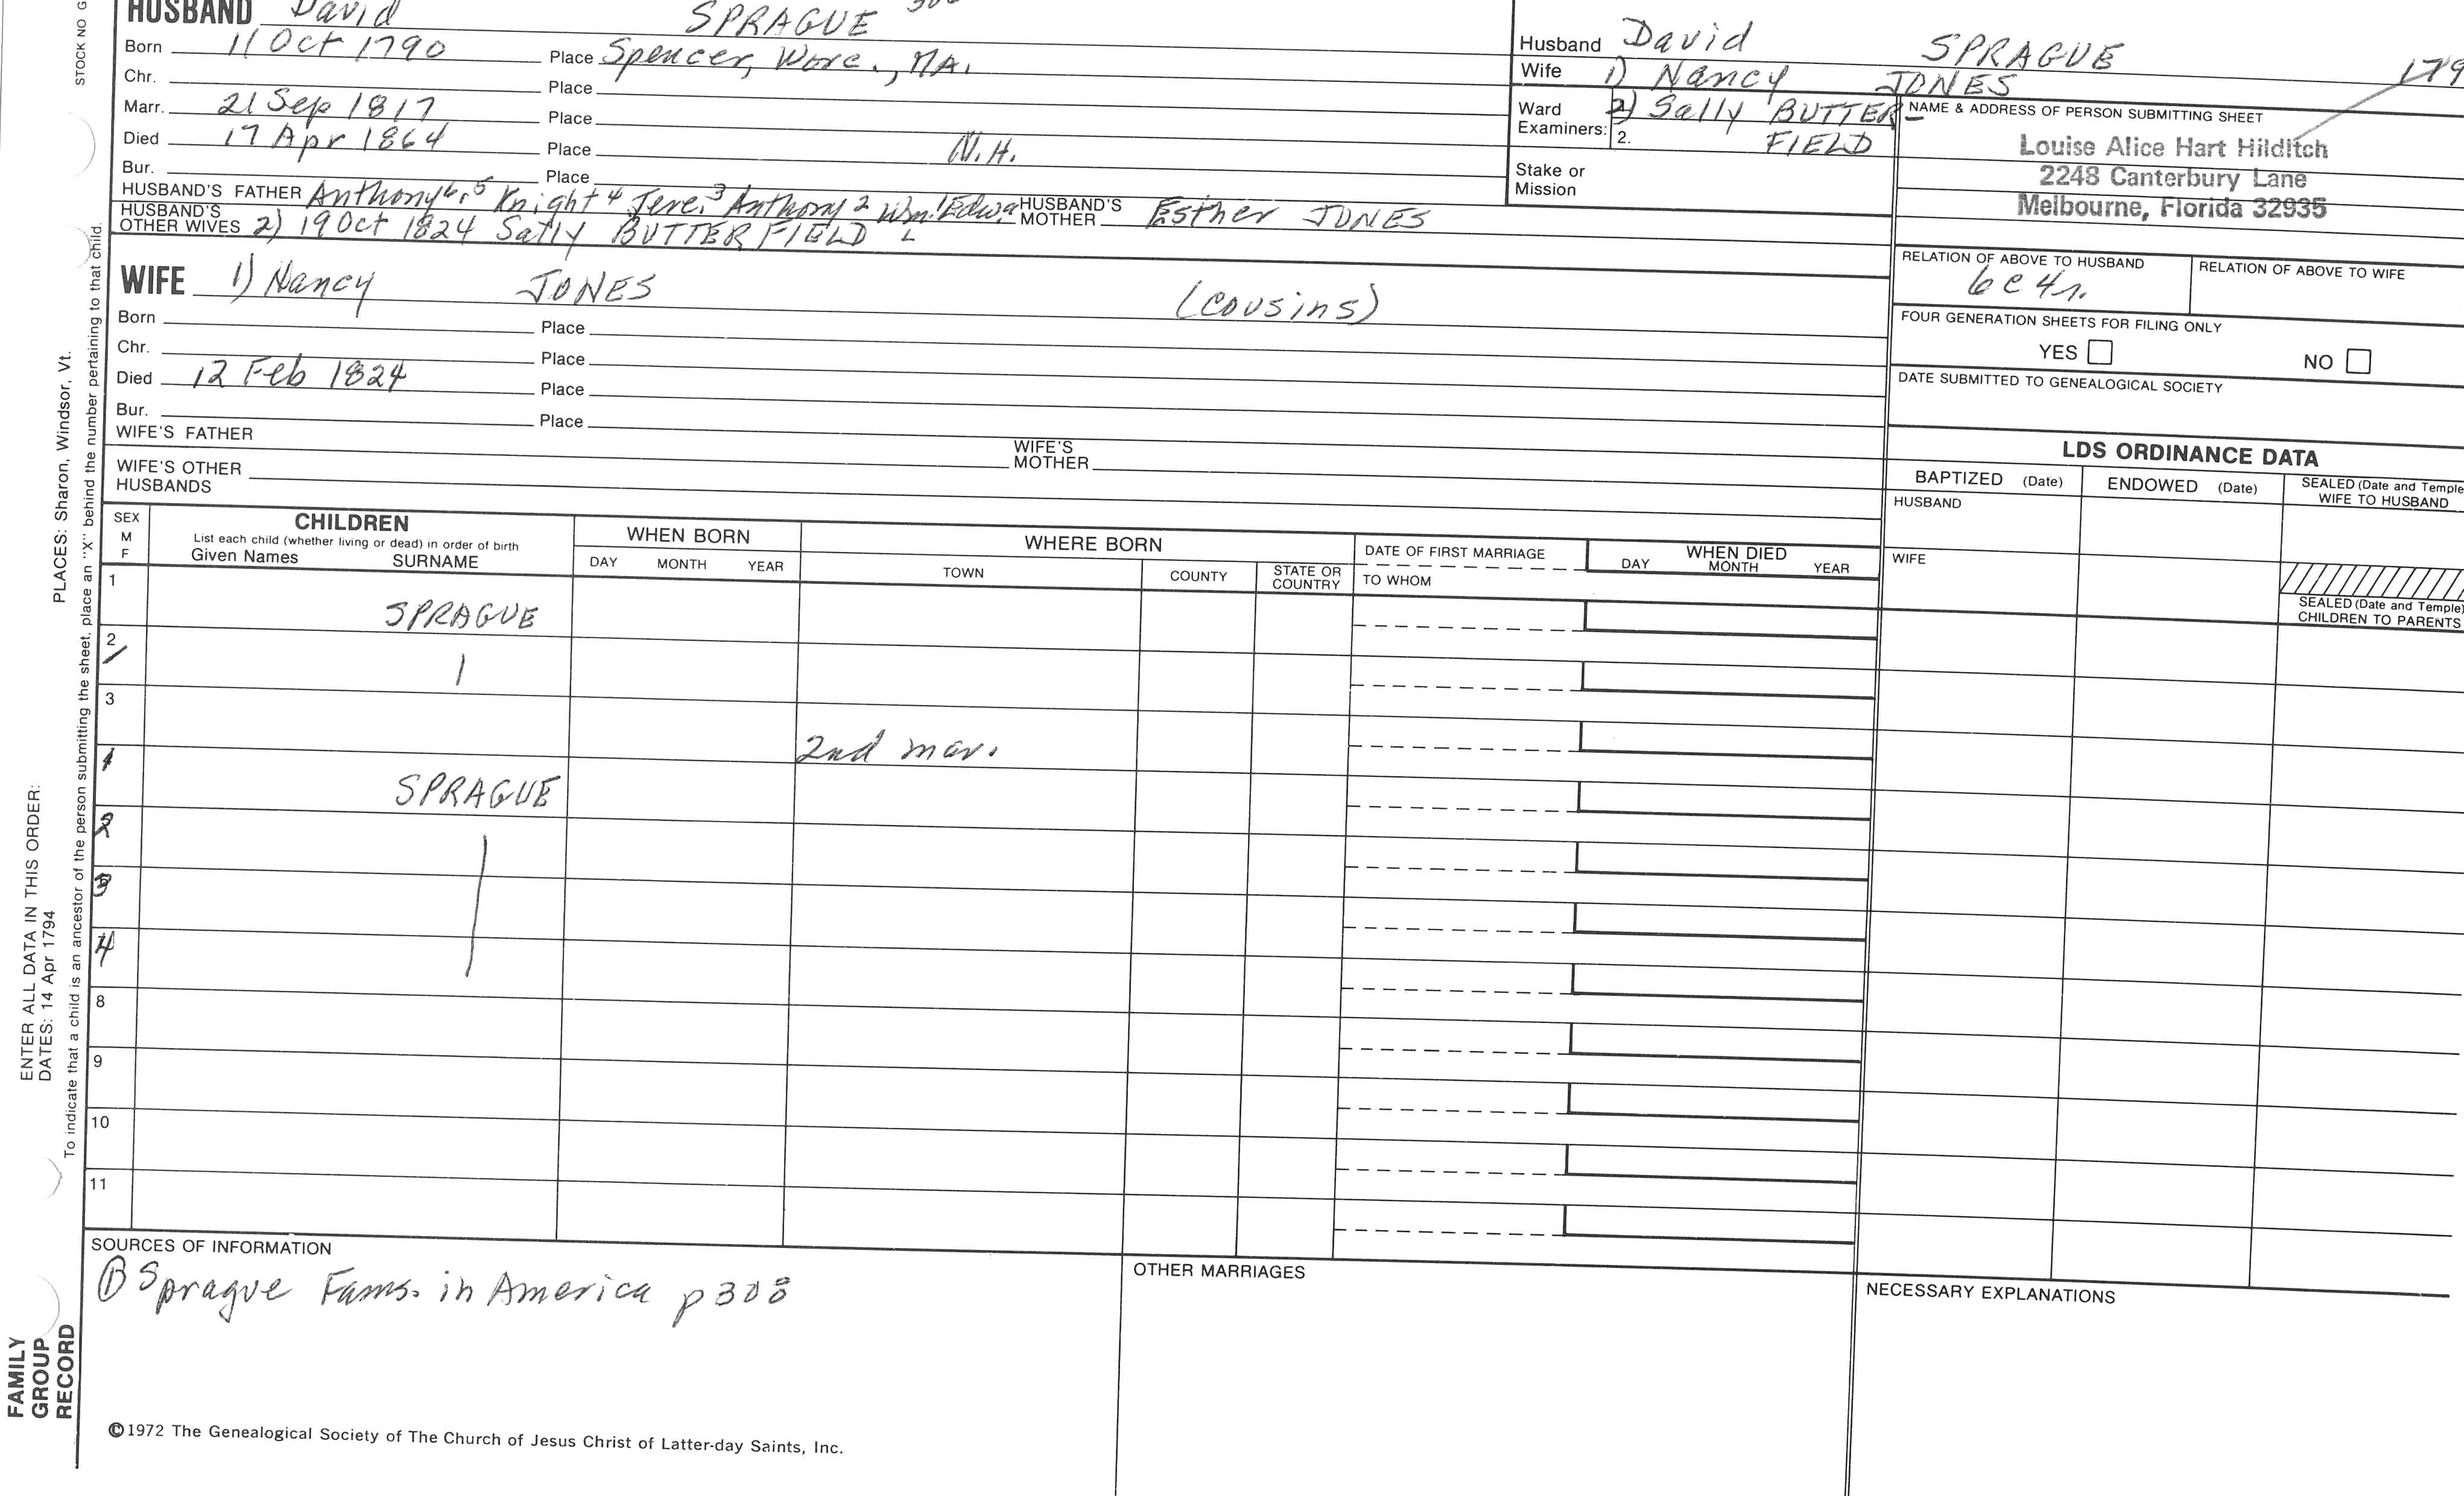 HUSBAND David SPRAGUE
Born 11 Oct 1790 Place Spencer, Worc., MA.
Chr. Place
Marr. 21 Sep 1817 Place
Died 17 Apr 1864 Place N.H.
Bur. Place
HUSBAND'S FATHER Anthony 6, 5 Knight 4 Jere. 3 Anthony 2 Wm. 1 Edwa HUSBAND'S MOTHER Esther JONES
HUSBAND'S OTHER WIVES 2) 19 Oct 1824 Sally BUTTERFIELD
WIFE 1) Nancy JONES (cousins)
Born Place
Chr. Place
Died 12 Feb 1824 Place
Bur. Place
WIFE'S FATHER WIFE'S MOTHER
WIFE'S OTHER HUSBANDS
Husband David SPRAGUE 179
Wife 1) Nancy JONES
Ward 2) Sally BUTTER-
Examiners: 2. FIELD
Stake or
Mission
NAME & ADDRESS OF PERSON SUBMITTING SHEET
Louise Alice Hart Hilditch
2248 Canterbury Lane
Melbourne, Florida 32935
RELATION OF ABOVE TO HUSBAND RELATION OF ABOVE TO WIFE
6c4r.
FOUR GENERATION SHEETS FOR FILING ONLY
YES NO
DATE SUBMITTED TO GENEALOGICAL SOCIETY
LDS ORDINANCE DATA
BAPTIZED (Date) ENDOWED (Date) SEALED (Date and Temple
WIFE TO HUSBAND
HUSBAND
WIFE
SEALED (Date and Temple)
CHILDREN TO PARENTS
SEX
M
F
CHILDREN
List each child (whether living or dead) in order of birth
Given Names SURNAME
WHEN BORN
DAY MONTH YEAR
WHERE BORN
TOWN COUNTY STATE OR COUNTRY
DATE OF FIRST MARRIAGE
TO WHOM
WHEN DIED
DAY MONTH YEAR
1 SPRAGUE
2
3
2nd mar.
1 SPRAGUE
2
3
4
8
9
10
11
SOURCES OF INFORMATION
① Sprague Fams. in America p 308
OTHER MARRIAGES
NECESSARY EXPLANATIONS
©1972 The Genealogical Society of The Church of Jesus Christ of Latter-day Saints, Inc.
STOCK NO G
PLACES: Sharon, Windsor, Vt.
To indicate that a child is an ancestor of the person submitting the sheet, place an "X" behind the number pertaining to that child.
ENTER ALL DATA IN THIS ORDER:
DATES: 14 Apr 1794
FAMILY
GROUP
RECORD